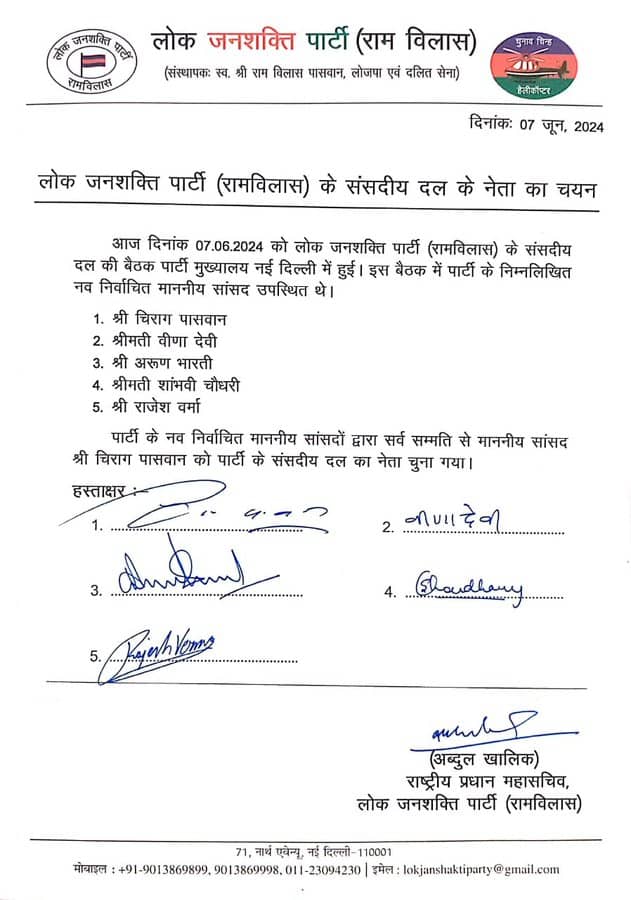 लोक जनशक्ति पार्टी
रामविलास
लोक जनशक्ति पार्टी (राम विलास)
(संस्थापकः स्व. श्री राम विलास पासवान, लोजपा एवं दलित सेना)
चुनाव चिन्ह
हेलीकॉप्टर
दिनांकः 07 जून, 2024
लोक जनशक्ति पार्टी (रामविलास) के संसदीय दल के नेता का चयन
आज दिनांक 07.06.2024 को लोक जनशक्ति पार्टी (रामविलास) के संसदीय
दल की बैठक पार्टी मुख्यालय नई दिल्ली में हुई। इस बैठक में पार्टी के निम्नलिखित
नव निर्वाचित माननीय सांसद उपस्थित थे।
1. श्री चिराग पासवान
2. श्रीमती वीणा देवी
3. श्री अरूण भारती
4. श्रीमती शांभवी चौधरी
5. श्री राजेश वर्मा
पार्टी के नव निर्वाचित माननीय सांसदों द्वारा सर्व सम्मति से माननीय सांसद
श्री चिराग पासवान को पार्टी के संसदीय दल का नेता चुना गया।
हस्ताक्षर :-
1.
2. वीणा देवी
3.
4. Choudhary
5. Rajesh Verma
(अब्दुल खालिक)
राष्ट्रीय प्रधान महासचिव,
लोक जनशक्ति पार्टी (रामविलास)
71, नार्थ एवेन्यू, नई दिल्ली-110001
मोबाइल : +91-9013869899, 9013869998, 011-23094230 | इमेल : lokjanshaktiparty@gmail.com